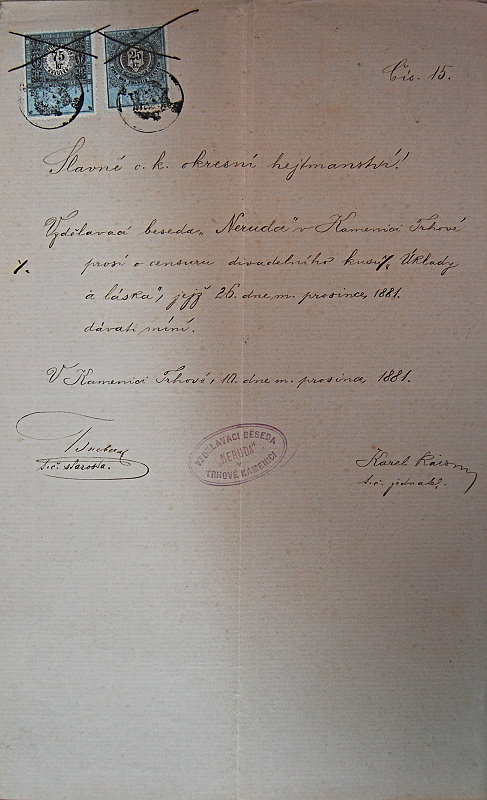 75
25
Čís. 15.
Slavné c. k. okresní hejtmanství!
Vzdělavací beseda „Neruda" v Kamenici Trhové
prosí o censuru divadelního kusu „Úklady
a láska", jejž 26. dne m. prosince 1881.
dávati míní.
V Kamenici Trhové, 10. dne m. prosince 1881.
t.č. starosta.
VZDĚLAVACÍ BESEDA
„NERUDA"
V
TRHOVÉ KAMENICI
Karel
t.č. jednatel.